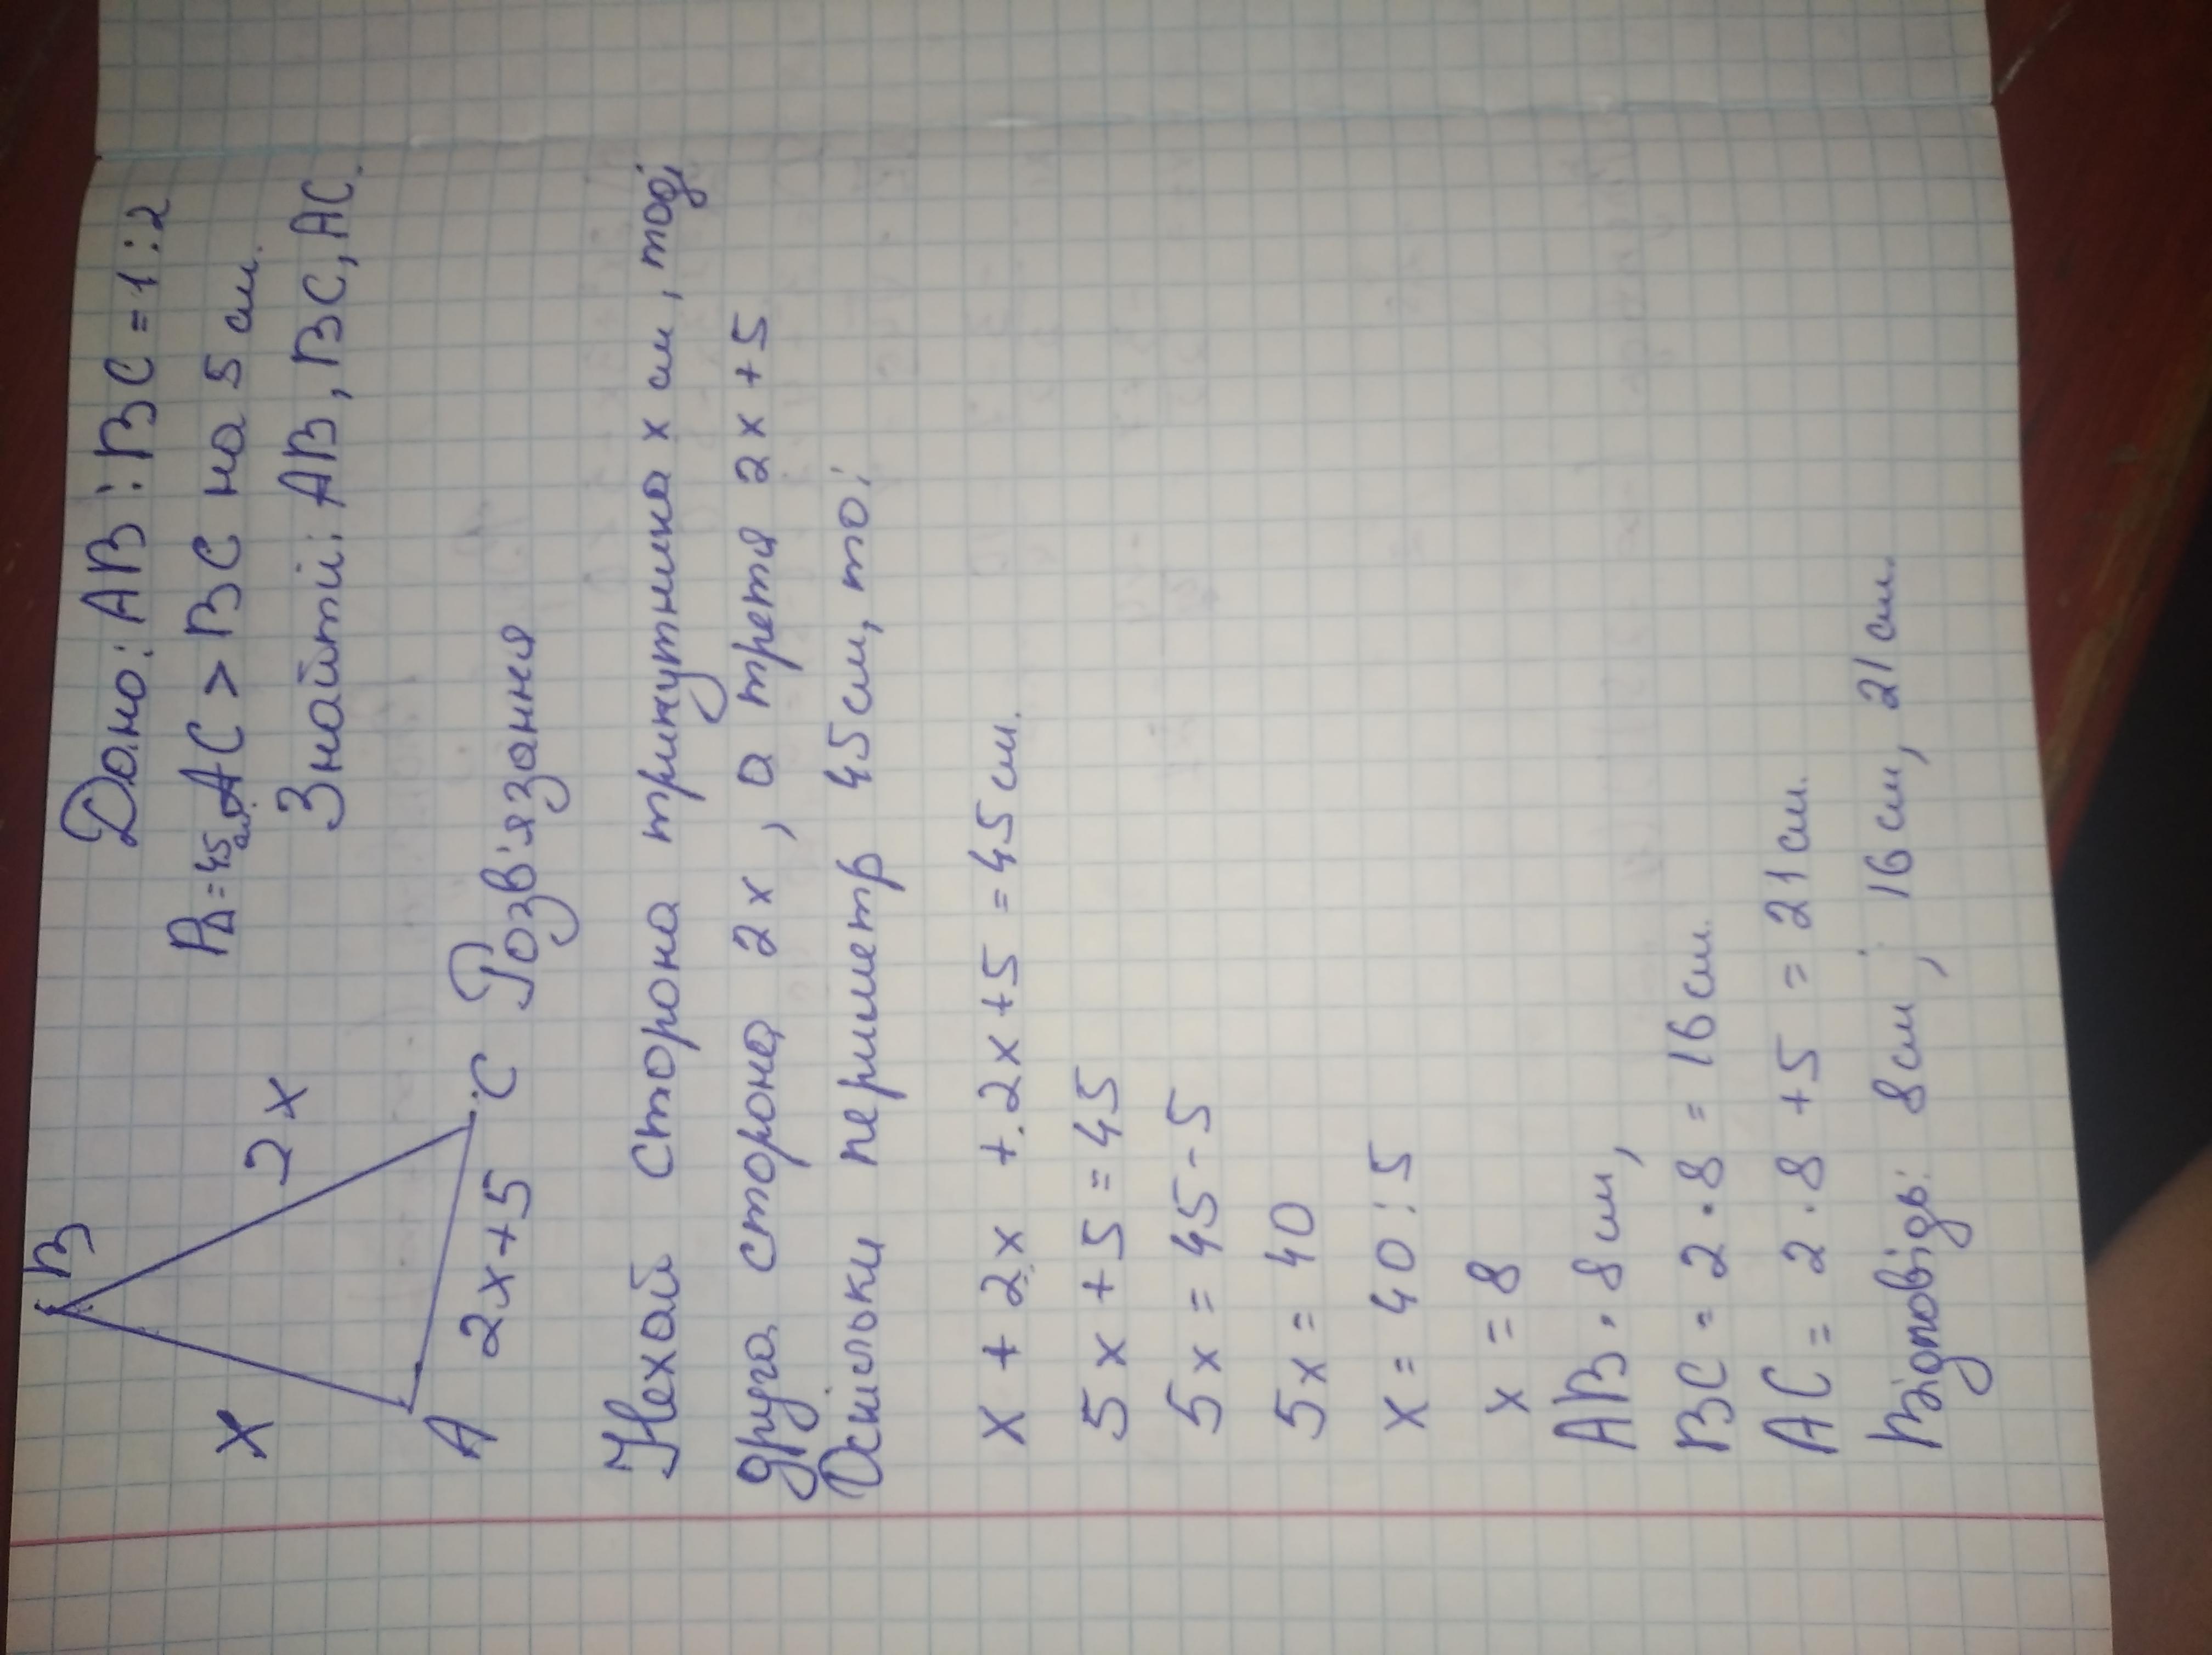 Дано: AB : BC = 1 : 2
PΔ = 45 см. AC > BC на 5 см.
Знайти: AB, BC, AC.
B
x
2x
A
C
2x+5
Розв'язання
Нехай сторона трикутника x см, тоді
друга сторона 2x, а третя 2x+5
Оскільки периметр 45 см, то:
x + 2x + 2x + 5 = 45 см.
5x + 5 = 45
5x = 45 - 5
5x = 40
x = 40 : 5
x = 8
AB = 8 см,
BC = 2 · 8 = 16 см.
AC = 2 · 8 + 5 = 21 см.
Відповідь: 8 см; 16 см, 21 см.